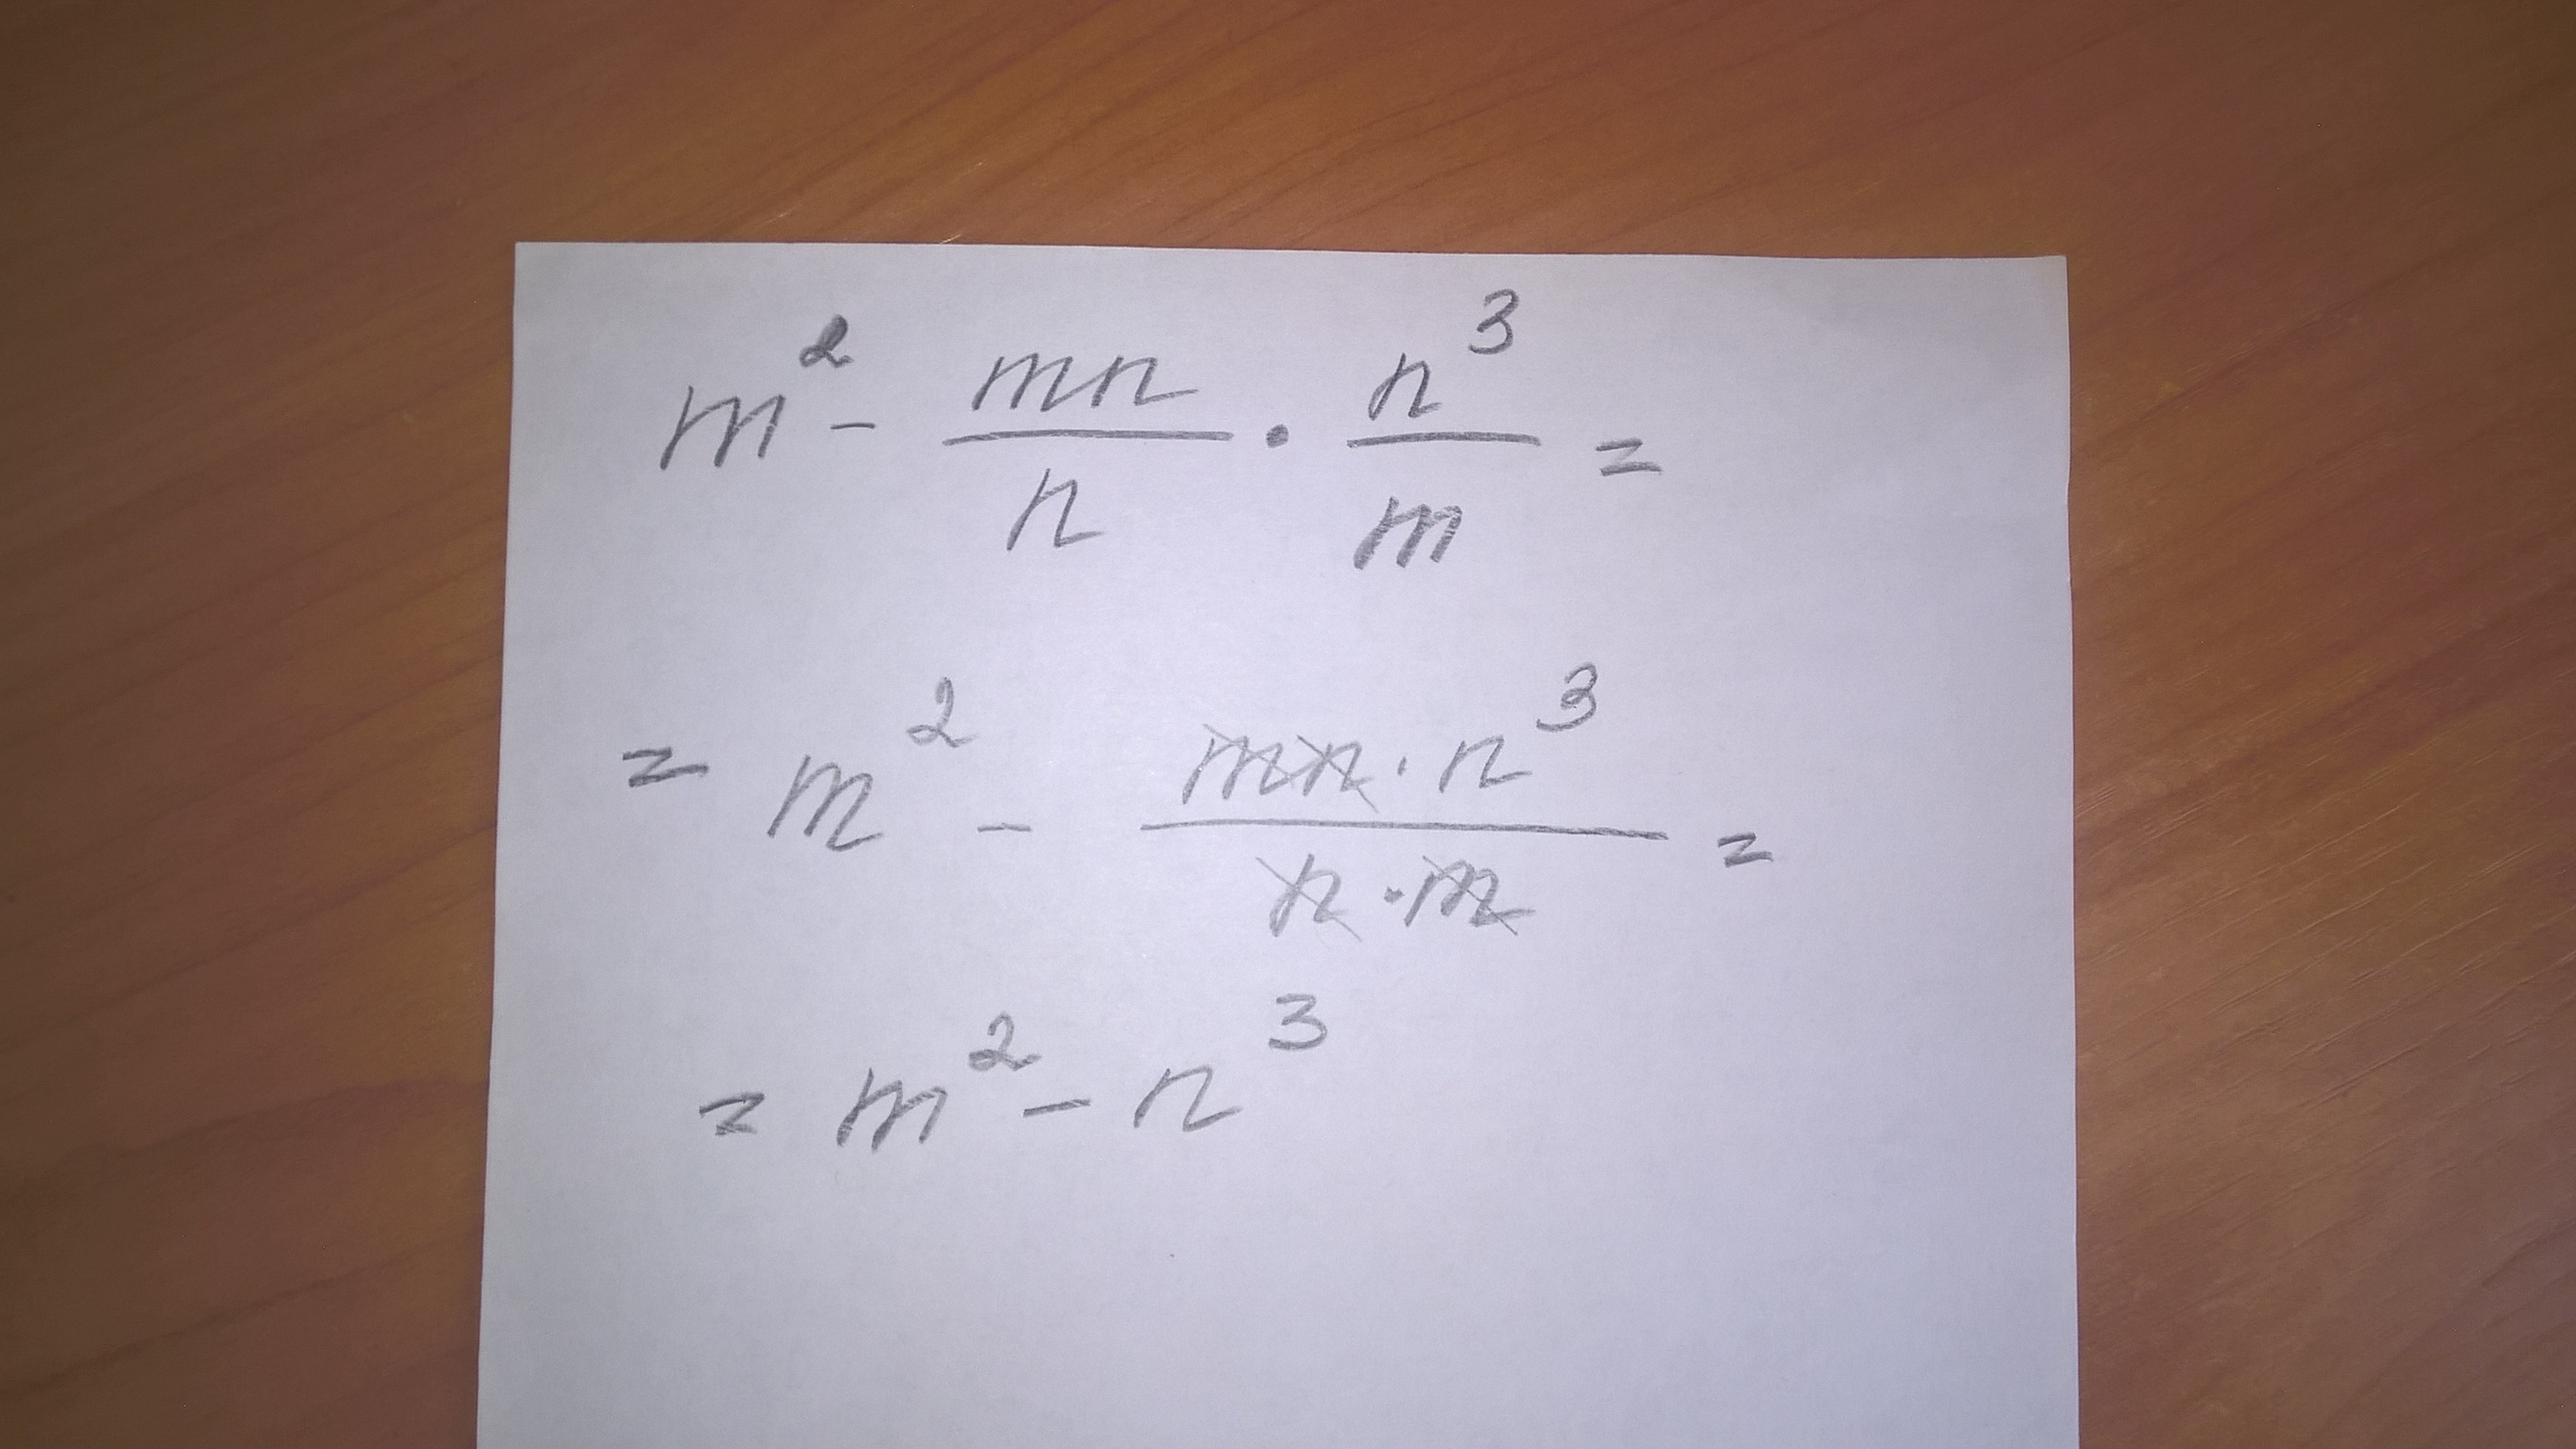 m² - mn/n · n³/m =
= m² - mn · n³/n · m =
= m² - n³